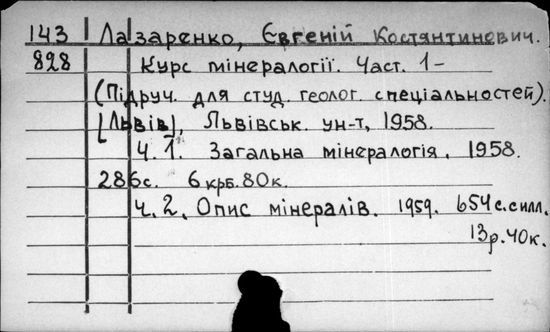 143 Лазаренко, Євгеній Костянтинович.
828 Курс мінералогії. Част. 1-
(Підруч. для студ. геолог. спеціальностей).
[Львів], Львівськ. ун-т, 1958.
Ч. 1. Загальна мінералогія. 1958.
286с. 6 крб. 80к.
Ч. 2. Опис мінералів. 1959. 654 с. с илл.
13р. 40к.